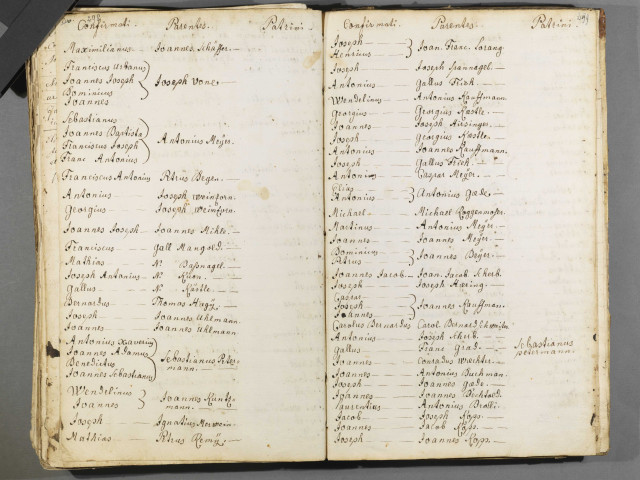 Confirmati. Parentes. Patrini.
Maximilianus Joannes Schäffer.
Franciscus Urbanus
Joannes Joseph Joseph Vone.
Dominicus
Joannes
Sebastianus
Joannes Baptista
Franciscus Joseph Antonius Meÿer.
Franc Antonius
Franciscus Antonius Petrus Begen.
Antonius Joseph Weinzorn.
Georgius Joseph Weinzorn.
Joannes Joseph Joannes
Franciscus Gall Mangold.
Mathias N. Baßnagel.
Joseph Antonius N.
Gallus N. Kästle.
Bernardus Thomas Angÿ.
Joseph Joannes Uhlmann.
Joannes Joannes Uhlmann.
Antonius Xaverius
Joannes Adamus
Benedictus Sebastianus Peter-
Joannes Sebastianus mann.
Wendelinus Joannes Kuntz-
Joannes mann.
Joseph Ignatius
Mathias Petrus Remÿ.
Confirmati. Parentes. Patrini.
Joseph Joan. Franc. Lorang
Henricus
Joseph Joseph
Antonius Gallus
Wendelinus Antonius Kauffmann.
Georgius Georgius Kästle.
Joannes Joseph
Joseph Georgius Kästle.
Antonius Joannes Kauffmann.
Joseph Gallus
Antonius Caspar Meÿer.
Elias
Antonius Antonius Gade.
Michael Michael Roggenmoser.
Martinus Antonius Meÿer.
Joannes Joannes Meÿer.
Dominicus
Petrus Joannes Beÿer.
Joannes Jacob Joan. Jacob Scherb.
Joseph Joseph
Caspar
Joseph Joannes Kauffman.
Joannes
Carolus Bernardus Carol Bernard
Antonius Joseph Scherb.
Gallus Franc Grade. Sebastianus
Petermann.
Joannes Conradus Waechter.
Joannes Antonius Buchman
Joseph Joannes Gade.
Joannes Joannes Bechtold.
Laurentius Antonius
Jacob Joseph Kopp.
Joannes Jacob Kopp.
Joseph Joannes Kopp.